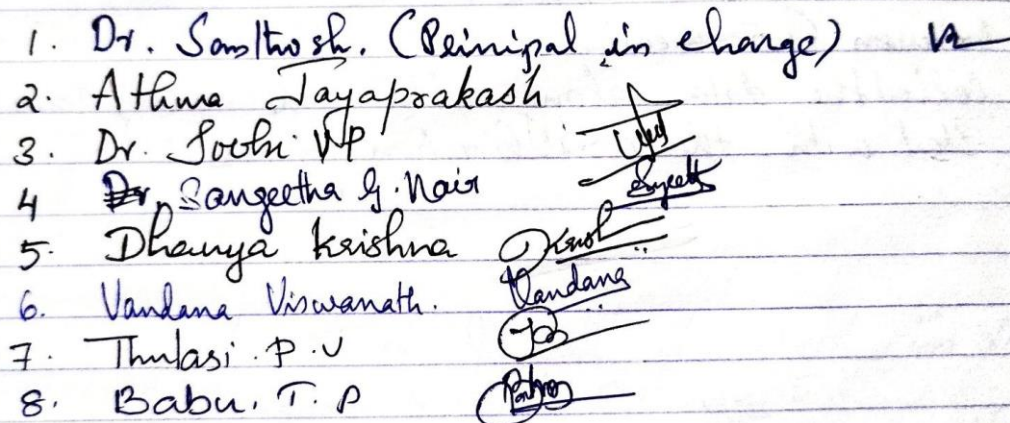 1. Dr. Santhosh. (Peinipal in charge)
2. Athma Jayaprakash
3. Dr. Soobi VP
4 Sangeetha G. Nair
5. Dhanya Krishna
6. Vandana Viswanath. Vandana
7. Thulasi . P . V
8. Babu. T. P